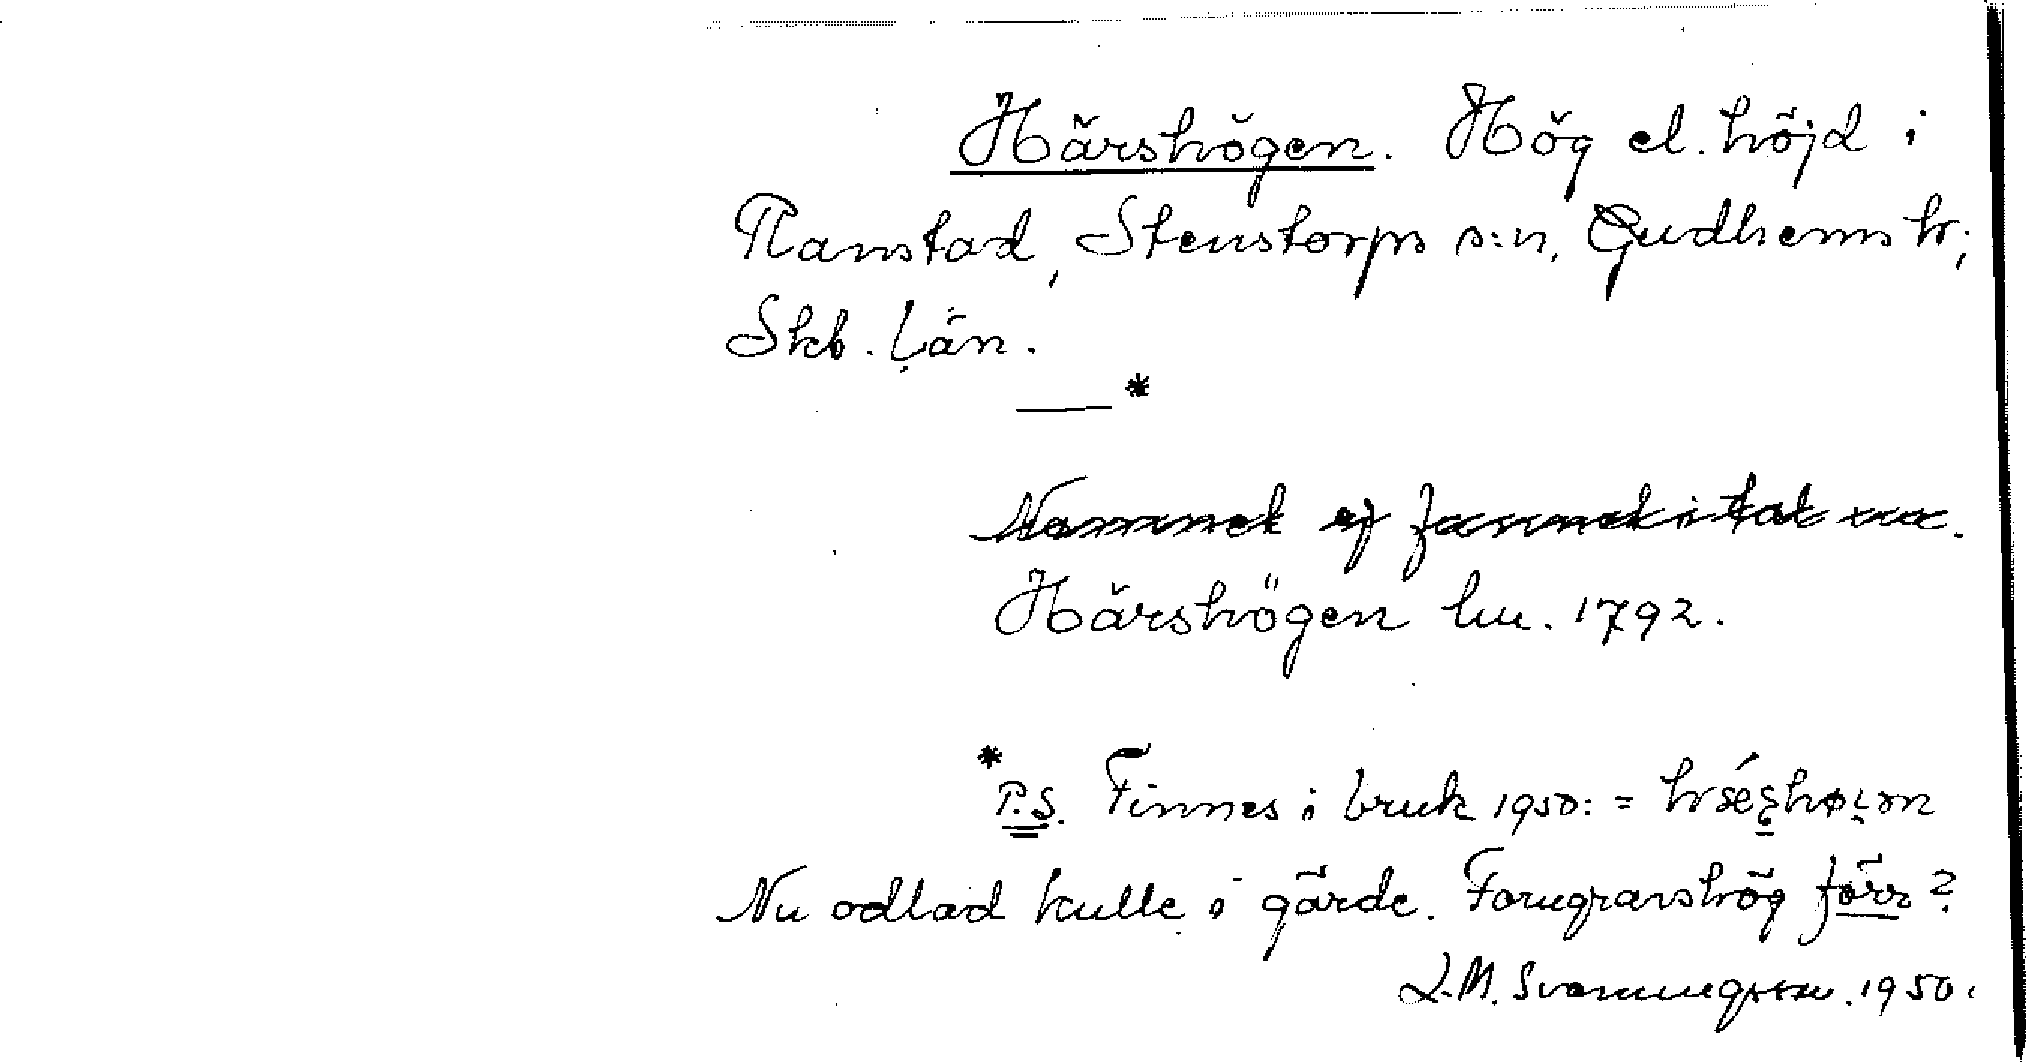 Härshögen. Hög el. höjd i
Ranstad, Stenstorps s:n, Gudhems hr;
Skb. Län.
*
Namnet ej funnet i tal nu.
Härshögen hu. 1792.
*P.S. Finnes i bruk 1950: =
Nu odlad kulle i gärde. Forngravshög förr?
L.M. Svanungsson. 1950.